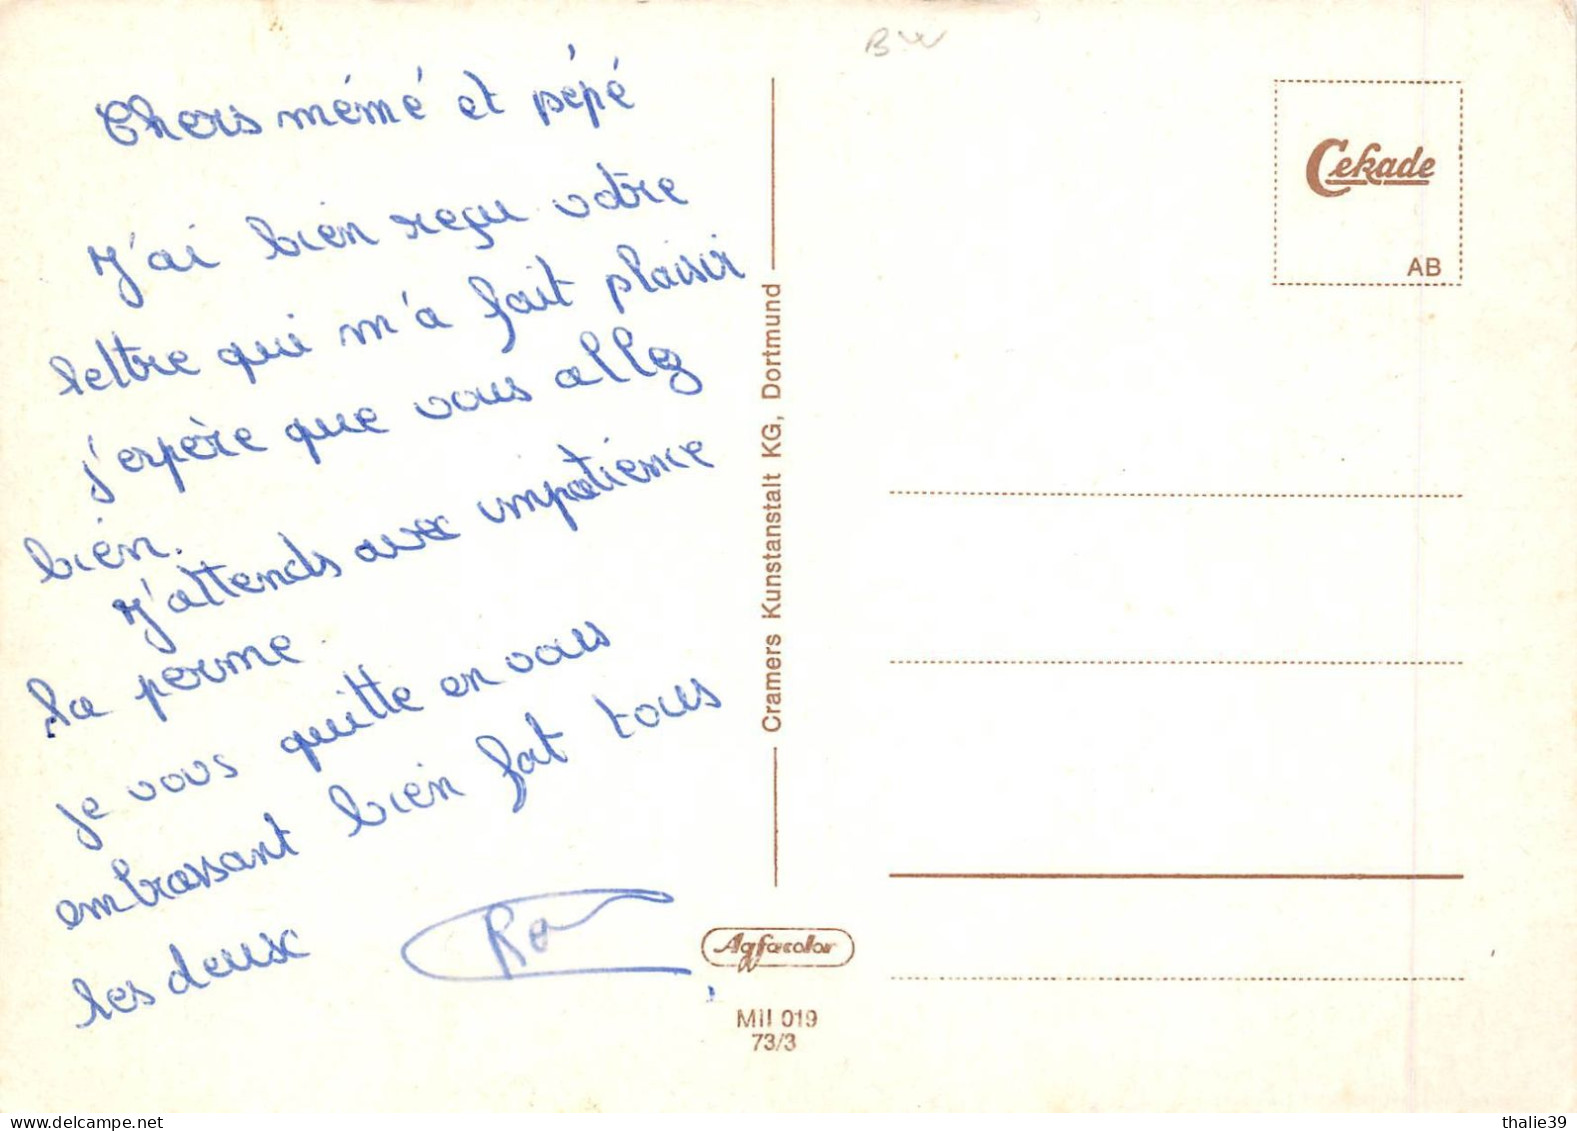 Chers mémé et pépé
J'ai bien reçu votre
lettre qui m'a fait plaisir
j'espère que vous allez
bien.
J'attends avec impatience
la perme.
je vous quitte en vous
embrassant bien fat tous
les deux
BW
Cekade
AB
Cramers Kunstanstalt KG, Dortmund
Agfacolor
Mil 019
73/3
thalie39